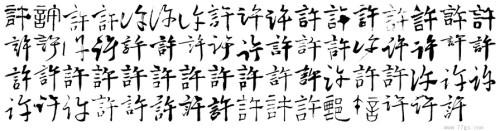 許許許許許許許許許許許許許許許許許
許許許許許許許許許許許許許許許許許
許許許許許許許許許許許許許許許許許
許許許許許許許許許許許許許許